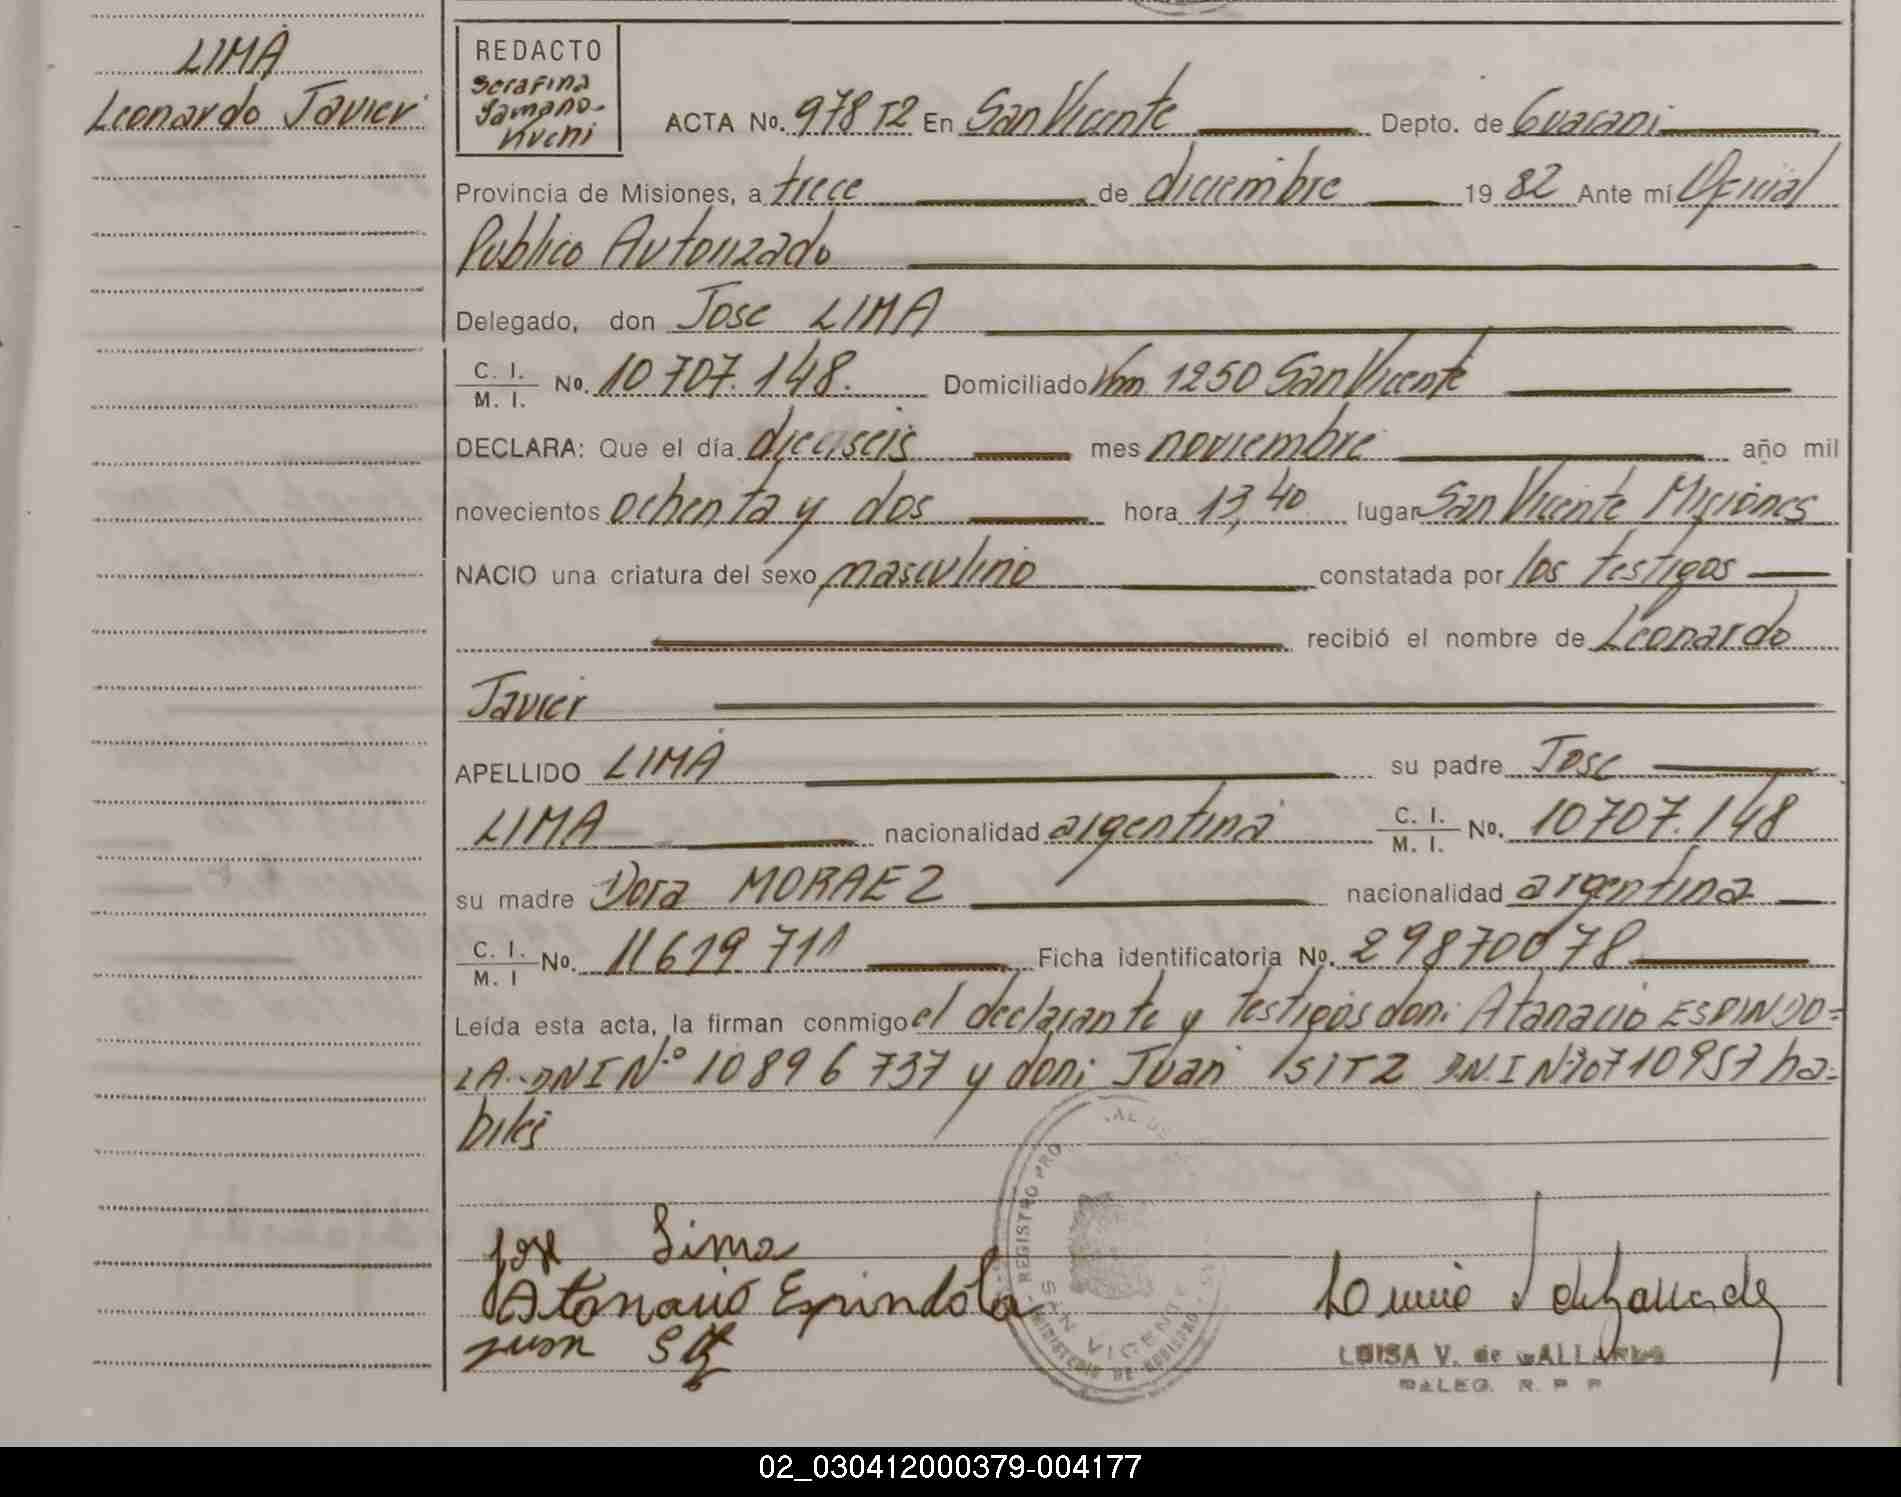 LIMA
Leonardo Javier
REDACTO
Serafina
Yamano-
Kuchi
ACTA No. 978 T2 En San Vicente Depto. de Guarani
Provincia de Misiones, a trece de diciembre 1982 Ante mí Oficial
Publico Autorizado
Delegado, don Jose LIMA
C. I.
M. I. No. 10707.148. Domiciliado Km 1250 San Vicente
DECLARA: Que el día dieciseis mes noviembre año mil
novecientos ochenta y dos hora 13,40 lugar San Vicente Misiones
NACIO una criatura del sexo masculino constatada por los testigos
recibió el nombre de Leonardo
Javier
APELLIDO LIMA su padre Jose
LIMA nacionalidad argentina C. I.
M. I. No. 10707.148
su madre Dora MORAEZ nacionalidad argentina
C. I.
M. I No. 11619 711 Ficha identificatoria No. 29870078
Leída esta acta, la firman conmigo el declarante y testigos don: Atanacio ESPINDO=
LA. DNI Nº 10896737 y don: Juan SITZ D.N.I Nº10710957 ha=
biles
Jose Lima
Atanacio Espindola
Juan
REGISTRO PRO
SAN VICENTE
LUISA V. de GALLARDO
DALEG. R. P. P
02_030412000379-004177